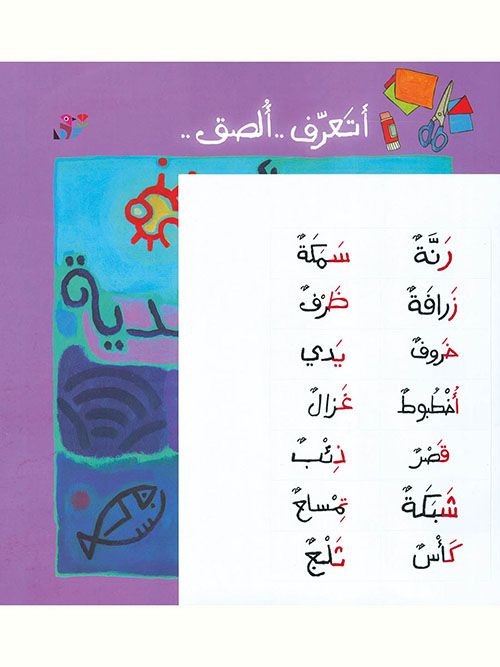 أتَعرّف ..أُلصق ..
ـدية
رَنَّةٌ سَمَكَةٌ
زَرافَةٌ ظَرْفٌ
خَروفٌ يَدي
أُخْطُبوطٌ غَزالٌ
قَصْرٌ ذِئْبٌ
شَبَكَةٌ تِمْساحٌ
كَأْسٌ ثَلْجٌ